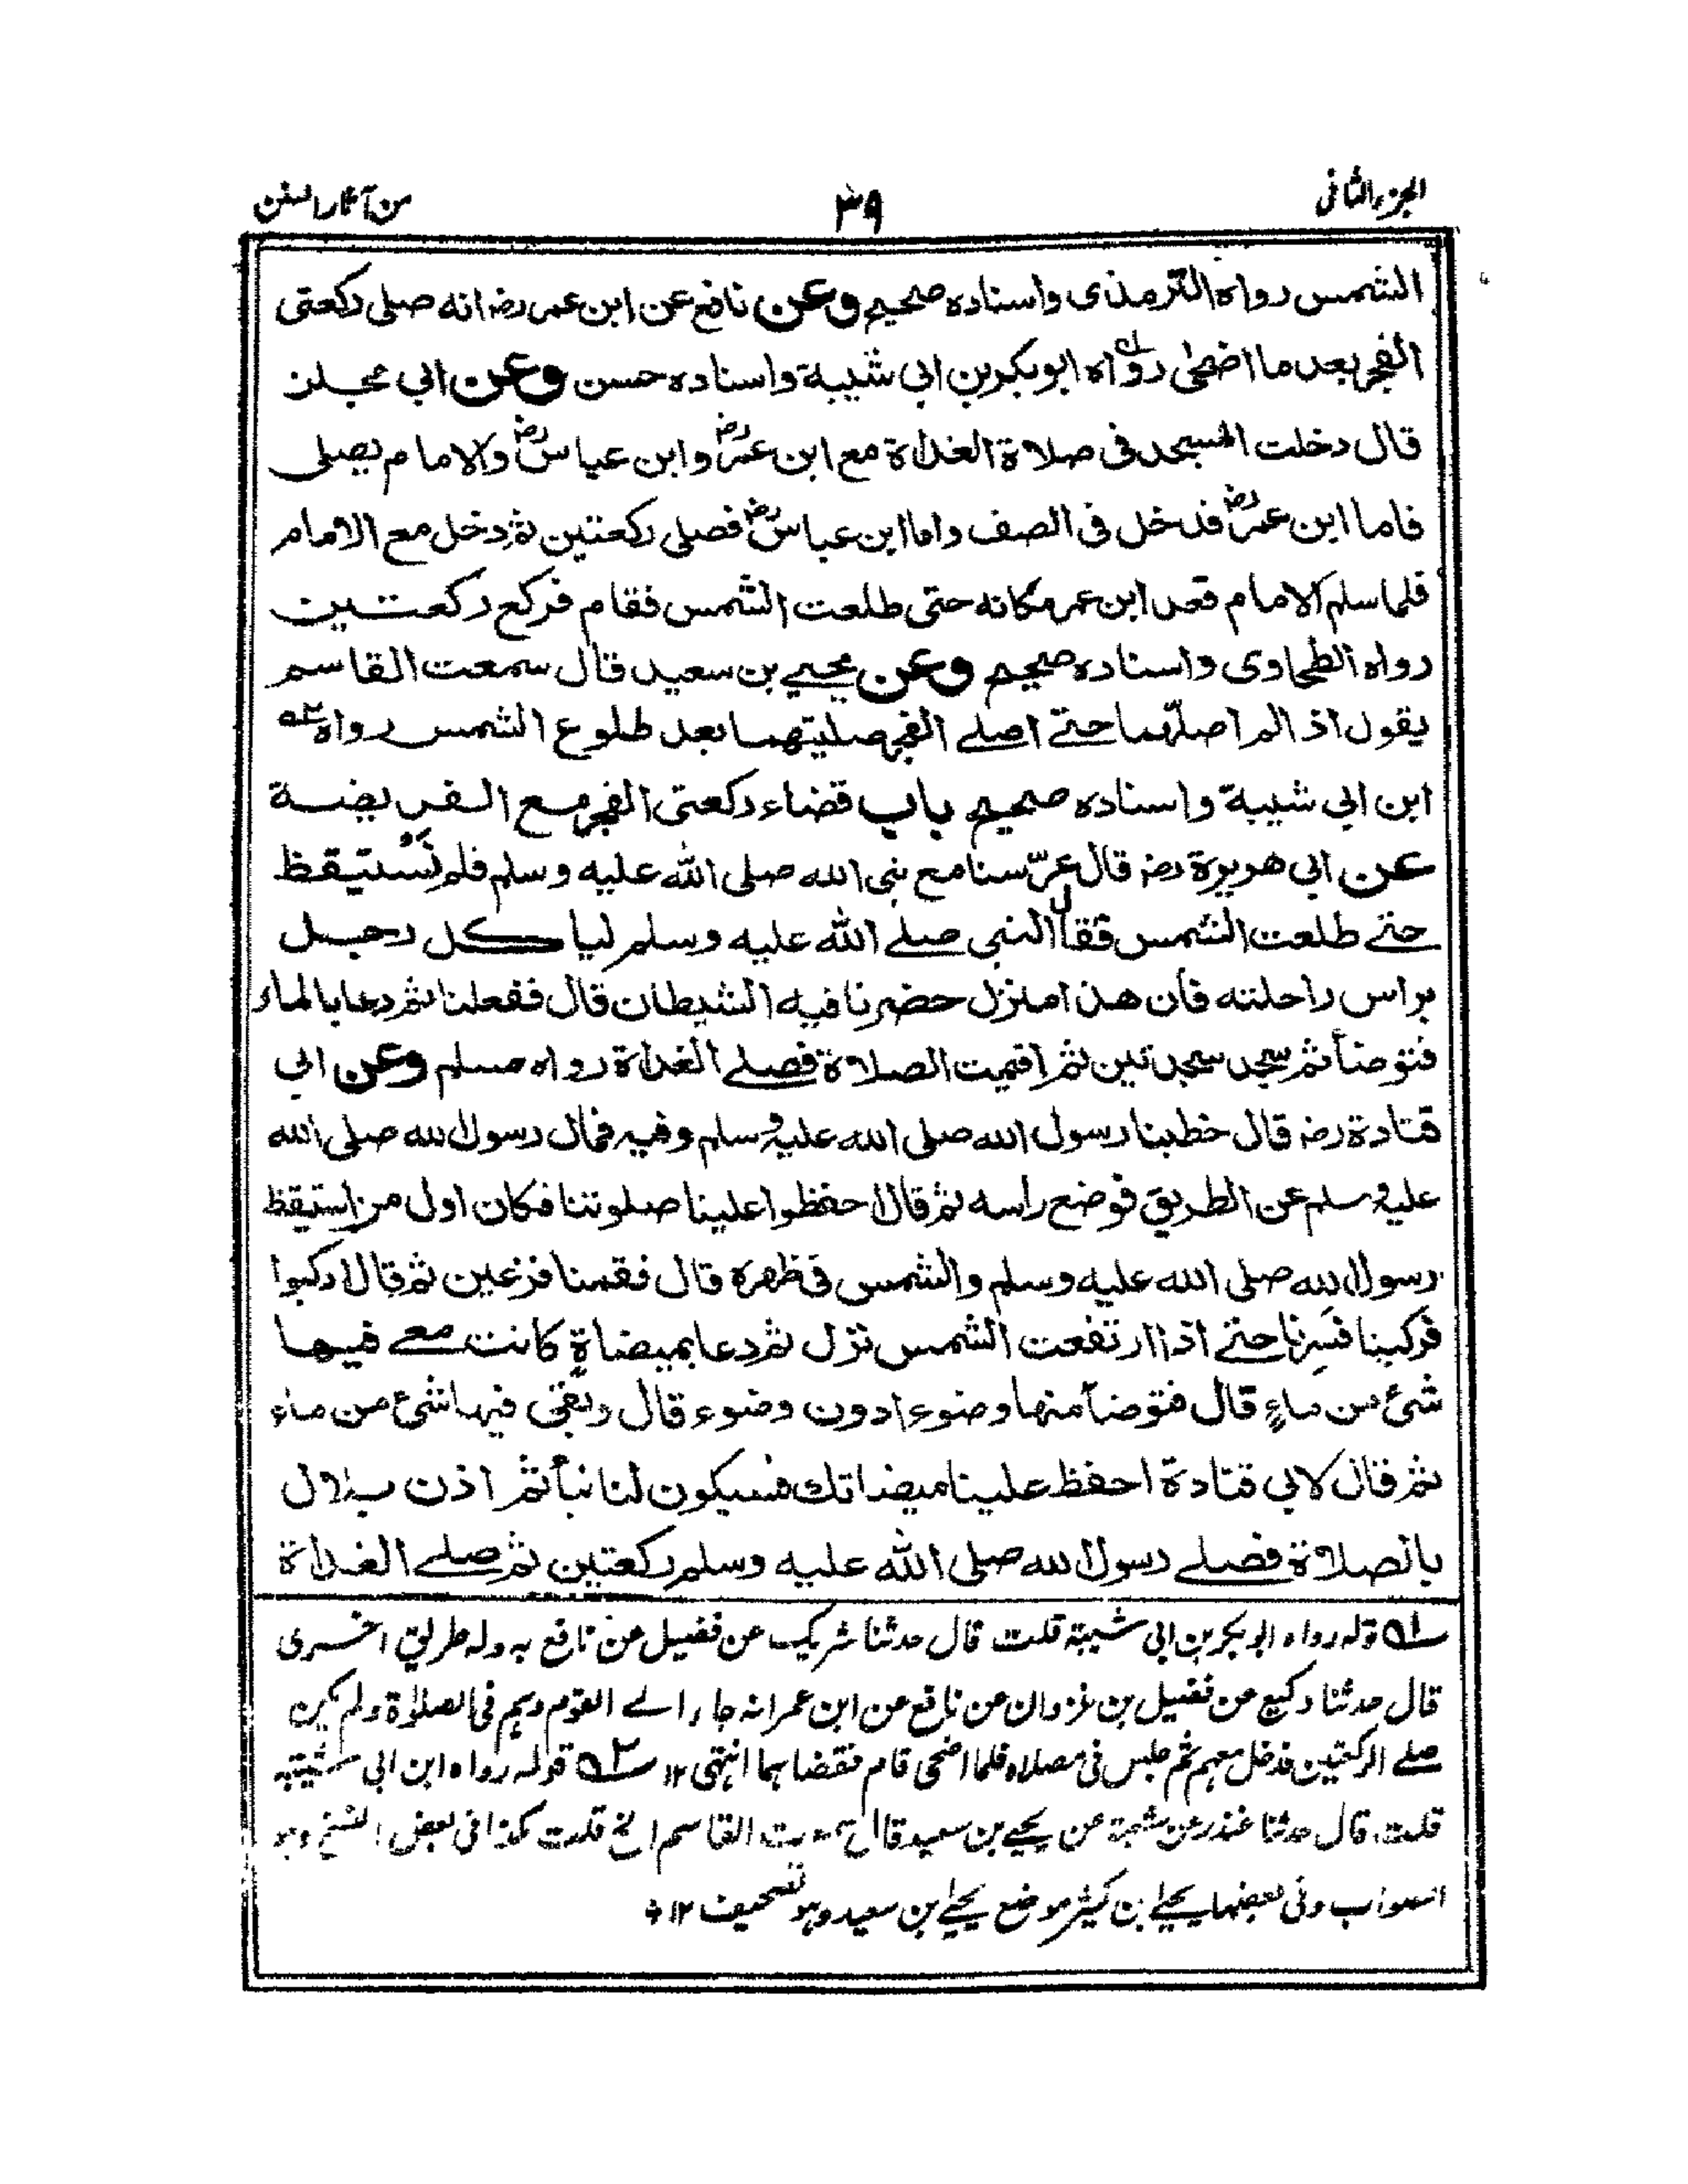 الجزء الثانى
٣٩
من آثار السنن
الشمس رواه الترمذى واسناده صحيح وعن نافع عن ابن عمر رضـ انه صلى ركعتى
الفجر بعد ما اضحى رواه ابوبكر بن ابى شيبة واسناده حسن وعن ابى مجلز
قال دخلت المسجد فى صلاة الغداة مع ابن عمر رضـ وابن عباس رضـ والامام يصلى
فاما ابن عمر رضـ فدخل فى الصف واما ابن عباس رضـ فصلى ركعتين ثم دخل مع الامام
فلما سلم الامام قعد ابن عمر مكانه حتى طلعت الشمس فقام فركع ركعتين
رواه الطحاوى واسناده صحيح وعن يحيى بن سعيد قال سمعت القاسم
يقول اذا لم اصلهما حتے اصلے الفجر صليتهما بعد طلوع الشمس رواه ٢ـه
ابن ابى شيبة واسناده صحيح باب قضاء ركعتى الفجر مع الفريضة
عن ابى هريرة رضـ قال عرّسنا مع نبى الله صلى الله عليه وسلم فلم نَسْتيقظ
حتے طلعت الشمس فقال النبى صلے الله عليه وسلم لياخذ كل رجل
براس راحلته فان هذا منزل حضرنا فيه الشيطان قال ففعلنا ثم دعا بالماء
فتوضأ ثم سجد سجدتين ثم اقيمت الصلاة فصلے الغداة رواه مسلم وعن ابى
قتادة رضـ قال خطبنا رسول الله صلى الله عليه وسلم وفيه فمال رسول الله صلى الله
عليه وسلم عن الطريق فوضع راسه ثم قال احفظوا علينا صلوتنا فكان اول من استيقظ
رسول الله صلى الله عليه وسلم والشمس فى ظهره قال فقمنا فزعين ثم قال اركبوا
فركبنا فَسِرنا حتے اذا ارتفعت الشمس نزل ثم دعا بميضاةٍ كانت معے فيها
شئ من ماءٍ قال فتوضأ منها وضوءا دون وضوء قال وبقى فيها شئ من ماء
ثم قال لابى قتادة احفظ علينا ميضاتك فسيكون لنا نبأ ثم اذن بلال
بالصلاة فصلے رسول الله صلى الله عليه وسلم ركعتين ثم صلے الغداة
١ـه قوله رواه ابو بكر بن ابى شيبة قلت قال حدثنا شريك عن فضيل عن نافع به وله طريق اخرى
قال حدثنا وكيع عن فضيل بن غزوان عن نافع عن ابن عمر انه جاء الے القوم وہم فى الصلاة ولم یكن
صلے الركعتين فدخل معہم ثم جلس فى مصلاه فلما اضحى قام فقضاہما انتہى ١٢ ٢ـه قوله رواه ابن ابى شيبة
قلت قال حدثنا غندر عن شعبة عن يحيے بن سعيد قال سمعت القاسم الخ قلت ہكذا فى بعض النسخ وہو
الصواب وفى بعضہا يحيے ابن كثير موضع يحيے بن سعيد وہو تصحيف ١٢